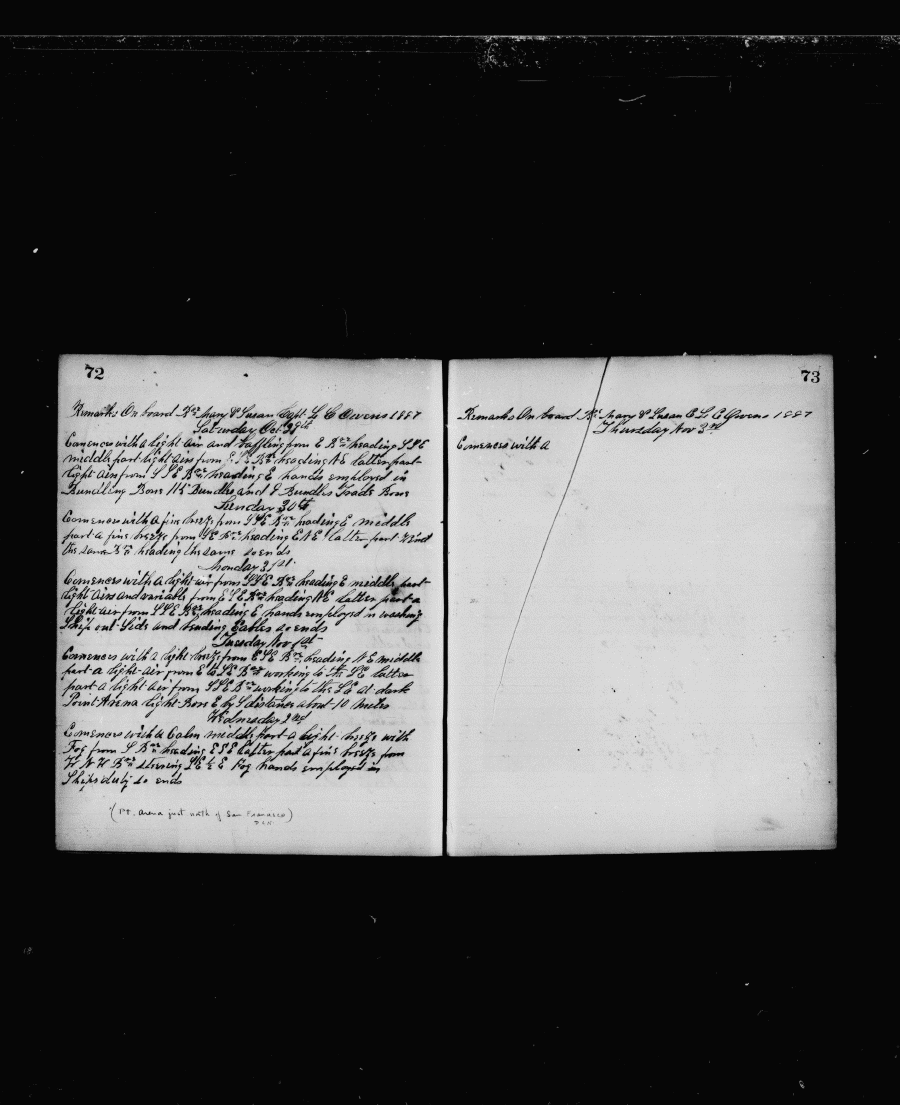 72
Remarks On board Bkn Mary & Susan Capt L C Owens 1887
Saturday Oct 29th
Comences with a light air and baffling from E Bkn heading SSE
middle part light airs from ESE Bkn heading NE latter part
light airs from SSE Bkn heading E hands employed in
Bundling Bone Bundles and Bundles Trade Bone
Sunday 30th
Comences with a fine breeze from SSE Bkn heading E middle
part a fine breeze from SE Bkn heading ENE latter part Wind
the same Bkn heading the same so ends
Monday 31st
Comences with a light air from SSE Bkn heading E middle part
light airs and variable from ESE Bkn heading NE latter part a
light air from SSE Bkn heading E hands employed in washing
Ship out Side and bending Cables so ends
Tuesday Nov 1st
Comences with a light breeze from ESE Bkn heading NE middle
part a light air from E Bkn working to the SE latter
part a light air from SSE Bkn working to the SE at dark
Point Arena light Bore E by S distance about 10 miles
Wednesday 2nd
Comences with a Calm middle part a light breeze with
Fog from S Bkn heading ESE latter part a fine breeze from
W N W Bkn steering SE ½ E Fog hands employed in
Ships duty so ends
(Pt. Arena just north of San Francisco)
73
Remarks On board Bkn Mary & Susan C L E Owens 1887
Thursday Nov 3rd
Comences with a